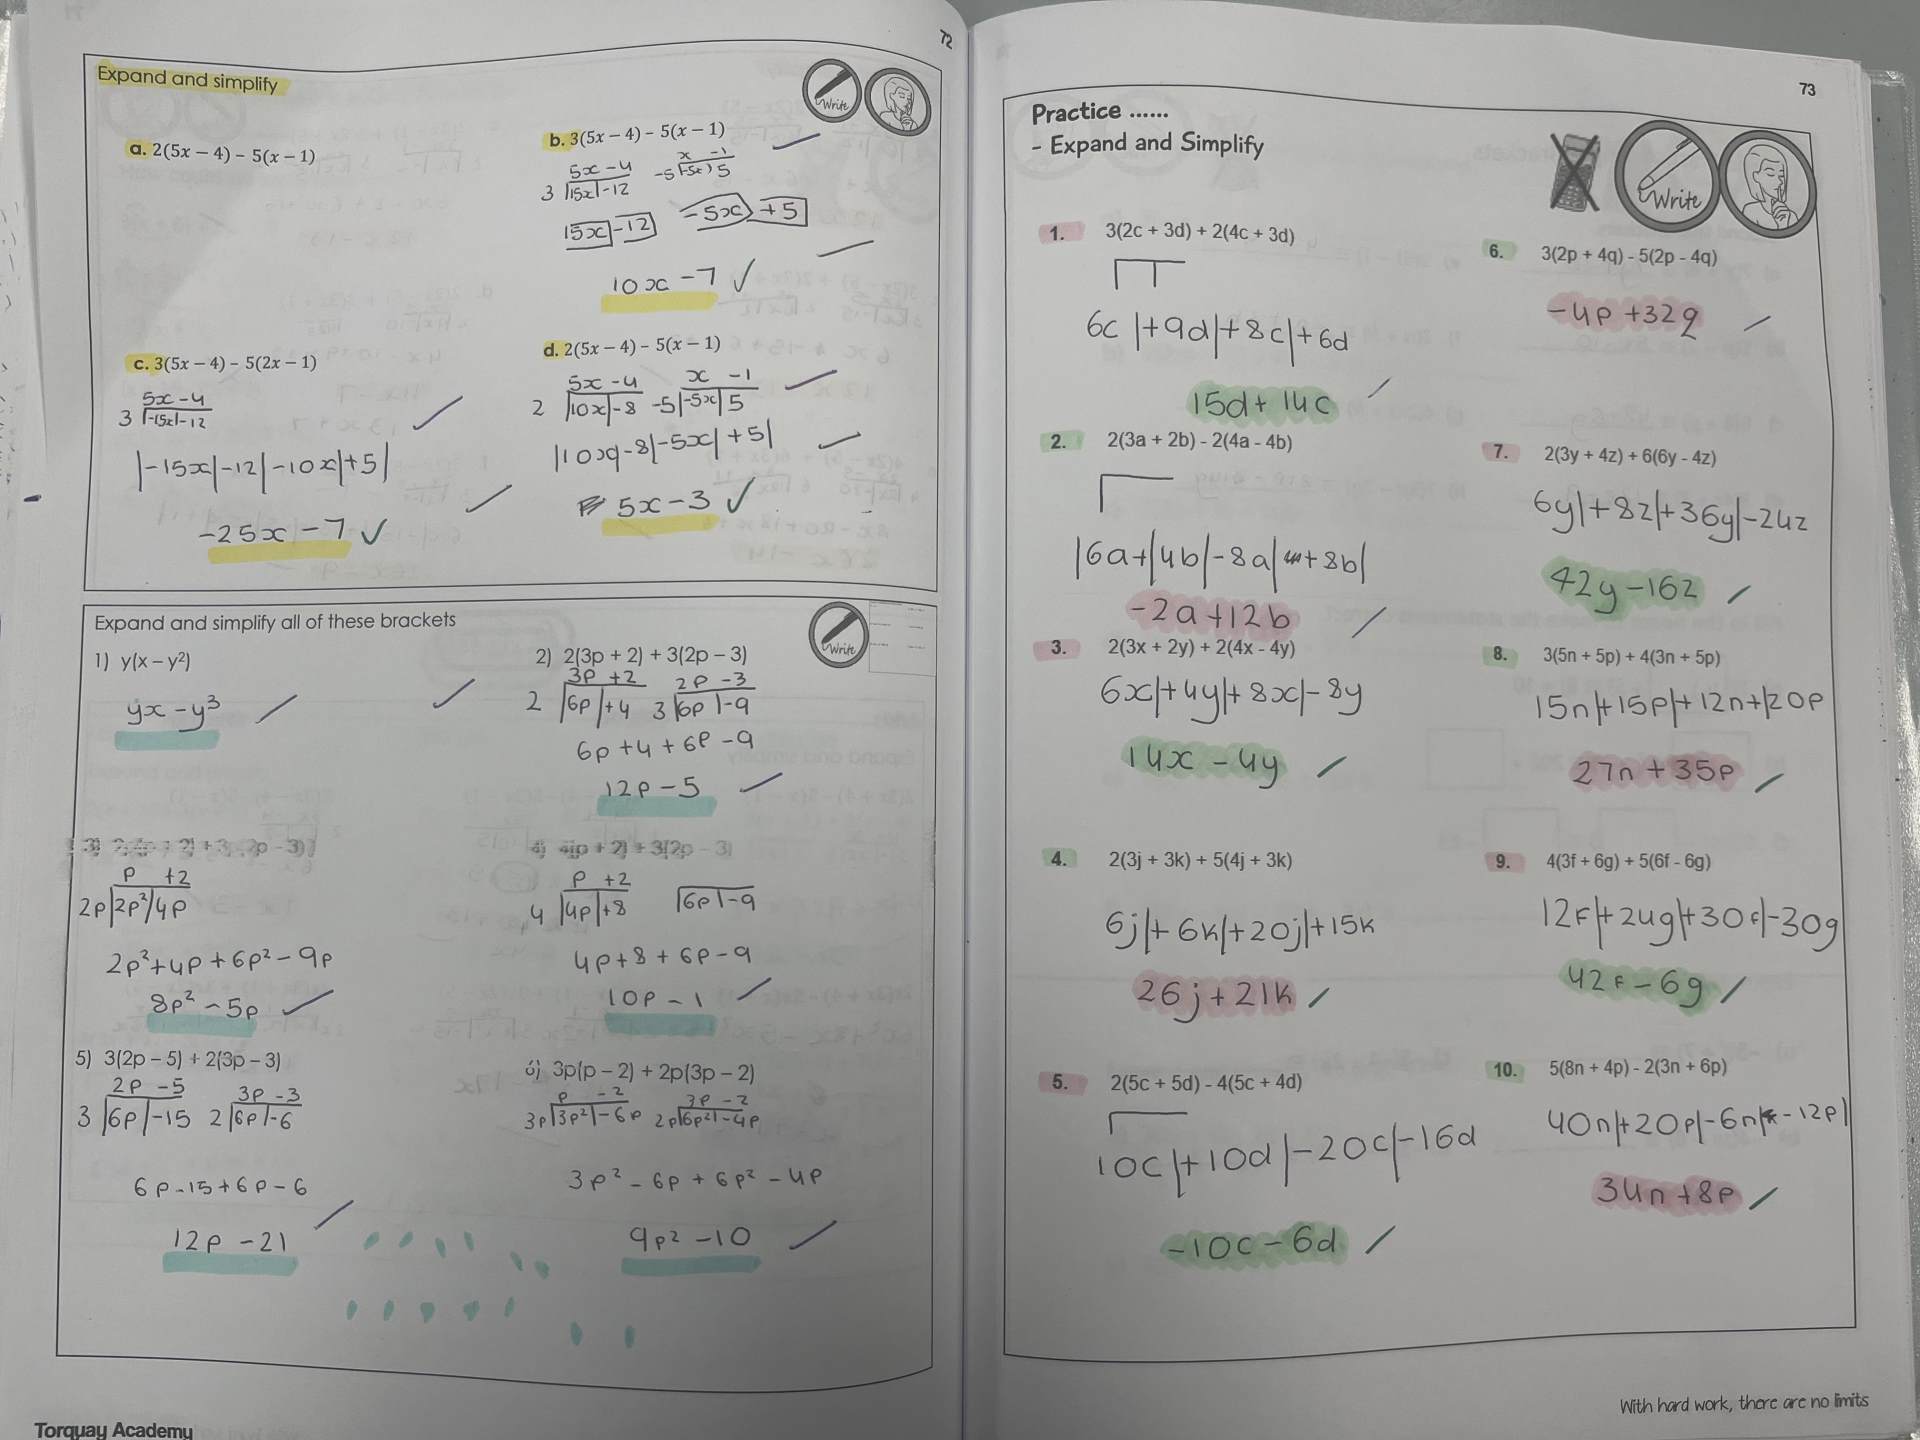 72
Expand and simplify
Write
a. 2(5x – 4) – 5(x – 1)
b. 3(5x – 4) – 5(x – 1)
5x - 4 x - 1
3 15x -12 -5 -5x 5
15x -12 -5x +5
10x - 7 ✓
c. 3(5x – 4) – 5(2x – 1)
5x - 4
3 -15x -12
|-15x|-12|-10x|+5|
-25x - 7 ✓
d. 2(5x – 4) – 5(x – 1)
5x - 4 x - 1
2 |10x|-8 -5|-5x|5
|10x|-8|-5x|+5|
5x - 3 ✓
Expand and simplify all of these brackets
Write
1) y(x – y²)
yx - y³
2) 2(3p + 2) + 3(2p – 3)
3p +2 2p -3
2 |6p|+4 3|6p|-9
6p + 4 + 6p - 9
12p - 5
p +2
2p|2p²|4p
2p² + 4p + 6p² - 9p
8p² - 5p
4) 4(p + 2) + 3(2p – 3)
p +2
4 |4p|+8 |6p|-9
4p + 8 + 6p - 9
10p - 1
5) 3(2p – 5) + 2(3p – 3)
2p -5 3p -3
3 |6p|-15 2|6p|-6
6p - 15 + 6p - 6
12p - 21
6) 3p(p – 2) + 2p(3p – 2)
p -2 3p -2
3p|3p²|-6p 2p|6p²|-4p
3p² - 6p + 6p² - 4p
9p² - 10
Torquay Academy
73
Practice ......
- Expand and Simplify
Write
1. 3(2c + 3d) + 2(4c + 3d)
6c |+9d|+8c|+6d
15d + 14c
2. 2(3a + 2b) - 2(4a - 4b)
|6a+|4b|-8a|+8b|
-2a + 12b
3. 2(3x + 2y) + 2(4x - 4y)
6x|+4y|+8x|-8y
14x - 4y
4. 2(3j + 3k) + 5(4j + 3k)
6j|+6k|+20j|+15k
26j + 21k
5. 2(5c + 5d) - 4(5c + 4d)
10c|+10d|-20c|-16d
-10c - 6d
6. 3(2p + 4q) - 5(2p - 4q)
-4p + 32q
7. 2(3y + 4z) + 6(6y - 4z)
6y|+8z|+36y|-24z
42y - 16z
8. 3(5n + 5p) + 4(3n + 5p)
15n|+15p|+12n+|20p
27n + 35p
9. 4(3f + 6g) + 5(6f - 6g)
12f|+24g|+30f|-30g
42f - 6g
10. 5(8n + 4p) - 2(3n + 6p)
40n|+20p|-6n|-12p|
34n + 8p
With hard work, there are no limits